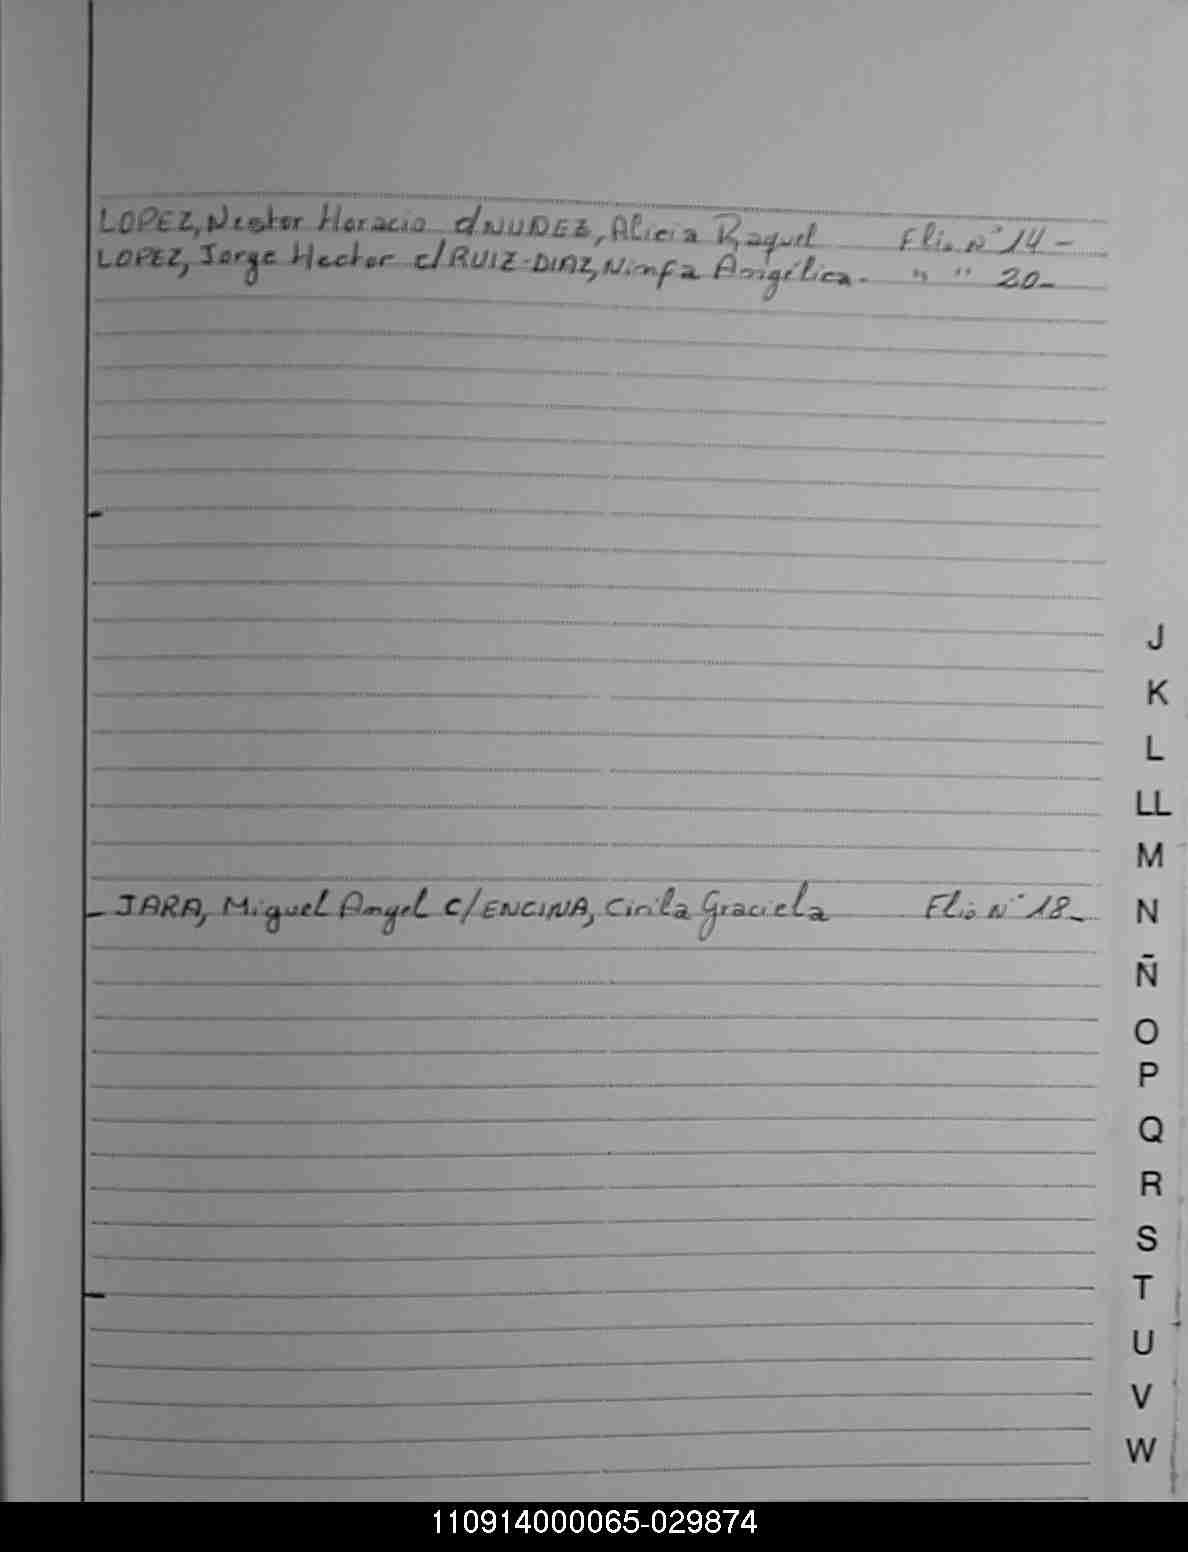 LOPEZ, Nestor Horacio c/NUDEZ, Alicia Raquel Flio N° 14-
LOPEZ, Jorge Hector c/RUIZ-DIAZ, Nimfa Angélica. " " 20-
J
K
L
LL
M
JARA, Miguel Angel C/ENCINA, Cirila Graciela Flio N° 18-
N
Ñ
O
P
Q
R
S
T
U
V
W
110914000065-029874